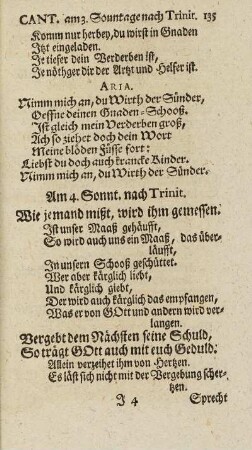 CANT. am 3. Sonntage nach Trinit. 135
Komm nur herbey, du wirst in Gnaden
Jtzt eingeladen.
Je tiefer dein Verderben ist,
Je nöthger dir der Artzt und Helfer ist.
ARIA.
Nimm mich an, du Wirth der Sünder,
Oeffne deinen Gnaden-Schooß.
Ist gleich mein Verderben groß,
Ach so ziehet doch dein Wort
Meine blöden Füsse fort:
Liebst du doch auch krancke Kinder.
Nimm mich an, du Wirth der Sünder.
Am 4. Sonnt. nach Trinit.
Wie jemand mißt, wird ihm gemessen.
Ist unser Maaß gehäufft,
So wird auch uns ein Maaß, das über-
läufft,
In unsern Schooß geschüttet.
Wer aber kärglich liebt,
Und kärglich giebt,
Der wird auch kärglich das empfangen,
Was er von GOtt und andern wird ver-
langen.
Vergebt dem Nächsten seine Schuld,
So trägt GOtt auch mit euch Gedult:
Allein verzeihet ihm von Hertzen.
Es läst sich nicht mit der Vergebung scher-
tzen.
J 4 Sprecht